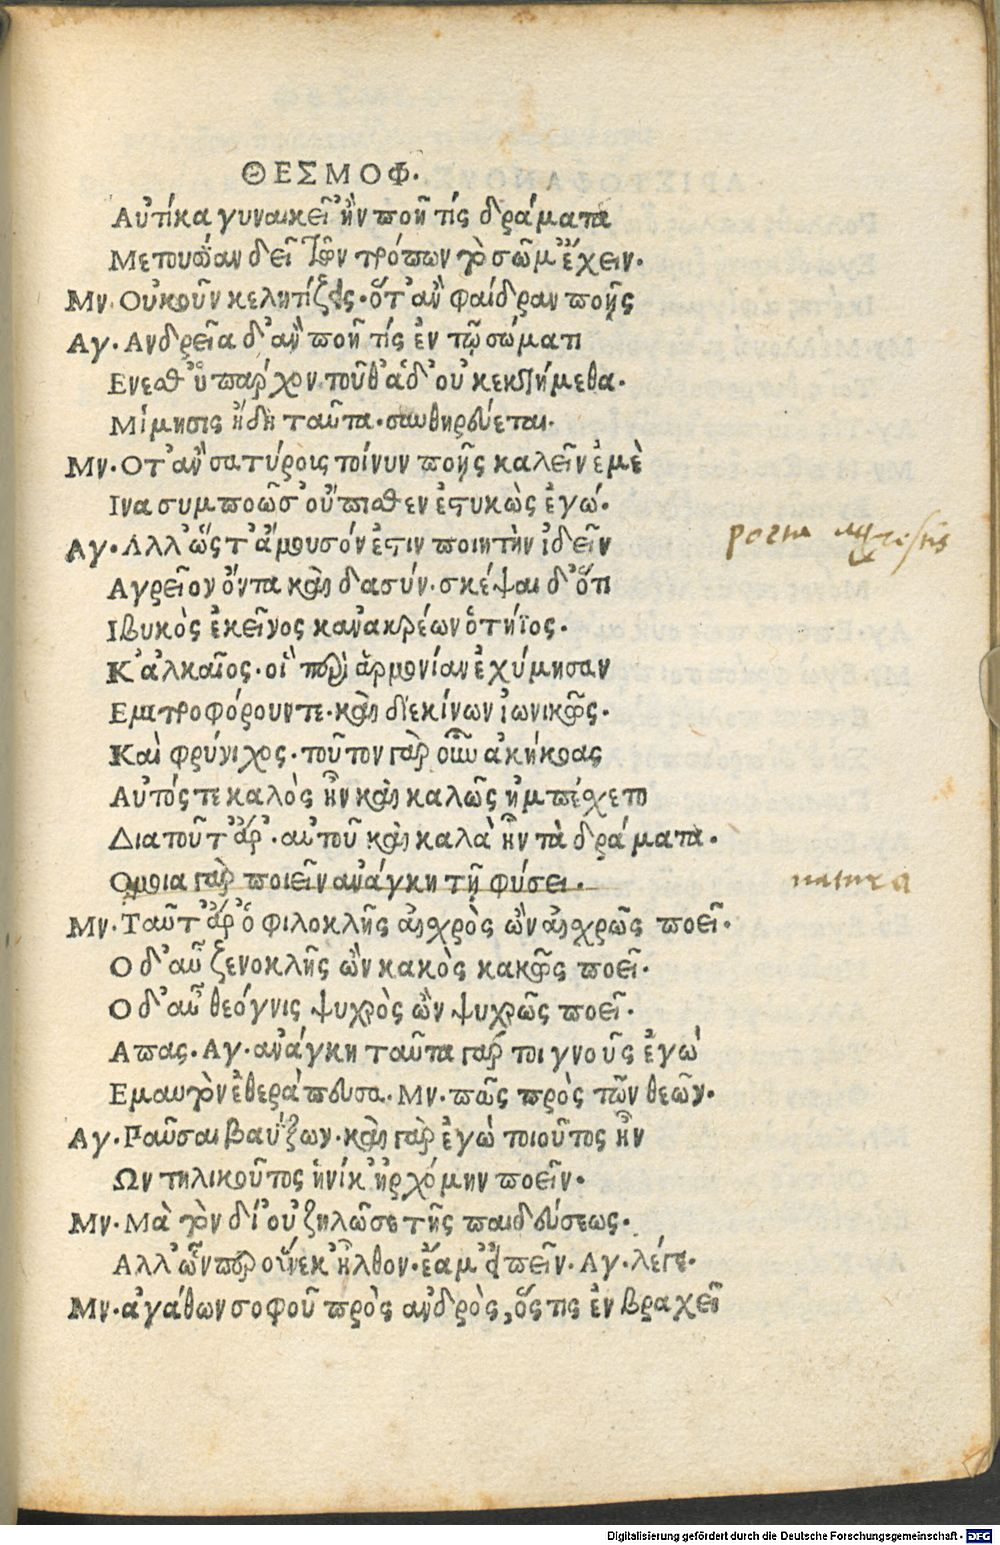 ΘΕΣΜΟΦ.
Αὐτίκα γυναικεῖ ἢν ποῇ τίς δράματα
Μετουσίαν δεῖ τῶν τρόπων τὸ σῶμ' ἔχειν.
Μν. Οὐκοῦν κελητίζεις. ὅτ' ἂν φαίδραν ποῇς
Αγ. Ανδρεῖα δ' ἂν ποῇ τίς ἐν τῷ σώματι
Ενεσθ' ὑπάρχον τοῦθ' ἃ δ' οὐ κεκτήμεθα.
Μίμησις ἤδη ταῦτα. συνθηρεύεται.
Μν. Οτ' ἂν σατύροις τοίνυν ποῇς καλεῖν ἐμὲ
Ινα συμποῶ σ' οὔπισθεν ἐστυκὼς ἐγώ.
Αγ. Αλλ' ὥς τ' ἄμουσόν ἐστιν ποιητὴν ἰδεῖν
poeta agrestis
Αγρεῖον ὄντα καὶ δασύν. σκέψαι δ' ὅτι
Ιβυκὸς ἐκεῖνος κανακρέων ὁ τήϊος.
Κ' ἀλκαῖος. οἵ περὶ ἁρμονίαν ἐχύμησαν
Εμιτροφόρουν τε. καὶ διεκίνων ἰωνικῶς.
Καὶ φρύνιχος. τοῦτον γὰρ οὖν ἀκήκοας
Αὐτός τε καλὸς ἦν καὶ καλῶς ἠμπέχετο
Διατοῦτ' ἄρ'. αὐτοῦ καὶ καλὰ ἦν τὰ δράματα.
Ομοια γὰρ ποιεῖν ἀνάγκη τῇ φύσει.
natura
Μν. Ταῦτ' ἄρ' ὁ φιλοκλῆς αἰσχρὸς ὢν αἰσχρῶς ποεῖ.
Ο δ' αὖ ξενοκλῆς ὢν κακὸς κακῶς ποεῖ.
Ο δ' αὖ θεόγνις ψυχρὸς ὢν ψυχρῶς ποεῖ.
Απας. Αγ. ἀνάγκη ταῦτα γάρ τοι γνοῦς ἐγὼ
Εμαυτὸν ἐθεράπευσα. Μν. πῶς πρὸς τῶν θεῶν.
Αγ. Παῦσαι βαύζων. καὶ γὰρ ἐγὼ τοιοῦτος ἢν
Ων τηλικοῦτος ἡνίκ' ἠρχόμην ποεῖν.
Μν. Μὰ τὸν δί' οὐ ζηλῶ σε τῆς παιδεύσεως.
Αλλ' ὧν περ οὕνεκ' ἦλθον. ἔα μ' εἰπεῖν. Αγ. λέγε.
Μν. ἀγάθων σοφοῦ πρὸς ἀνδρὸς, ὅς τις ἐν βραχεῖ
Digitalisierung gefördert durch die Deutsche Forschungsgemeinschaft - DFG